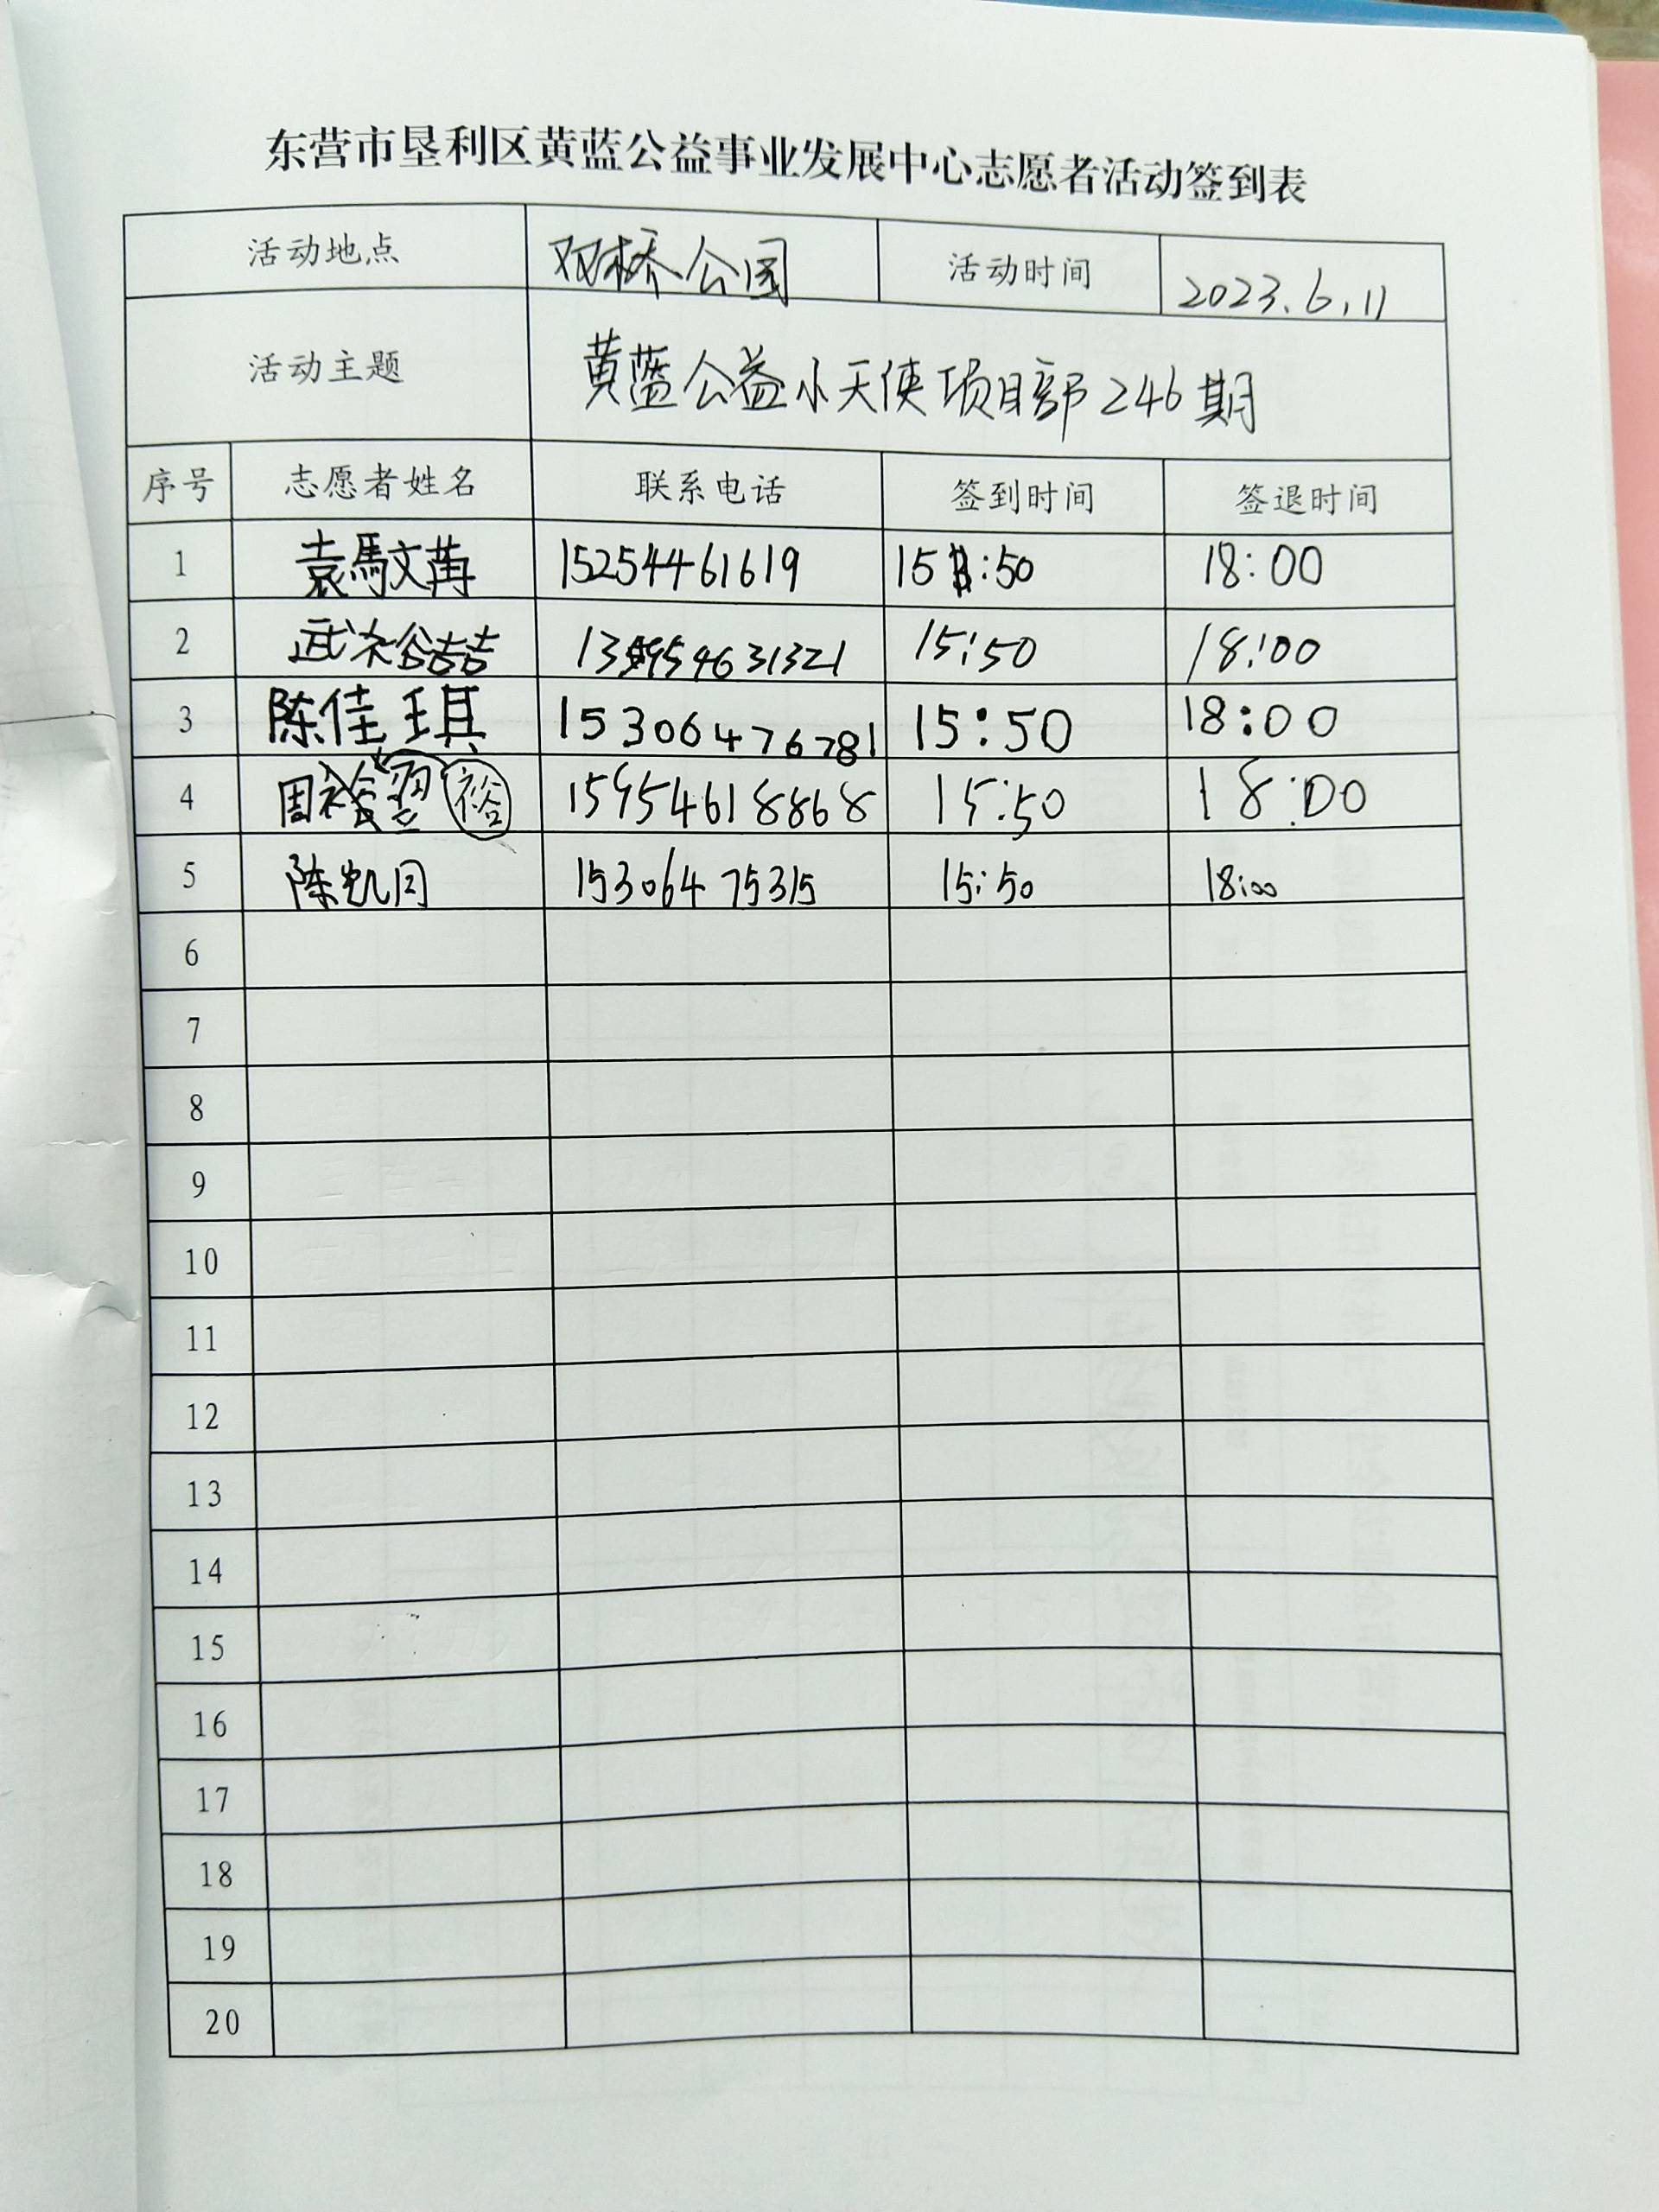 东营市垦利区黄蓝公益事业发展中心志愿者活动签到表
活动地点 双桥公园 活动时间 2023.6.11
活动主题 黄蓝公益小天使项目部246期
序号 志愿者姓名 联系电话 签到时间 签退时间
1 袁馭文苒 15254461619 15:50 18:00
2 武 喆 15:50 18:00
3 陈佳琪 15306476781 15:50 18:00
4 周裕翌 裕 15954618868 15:50 18:00
5 陈凯月 15306475315 15:50 18:00
6
7
8
9
10
11
12
13
14
15
16
17
18
19
20